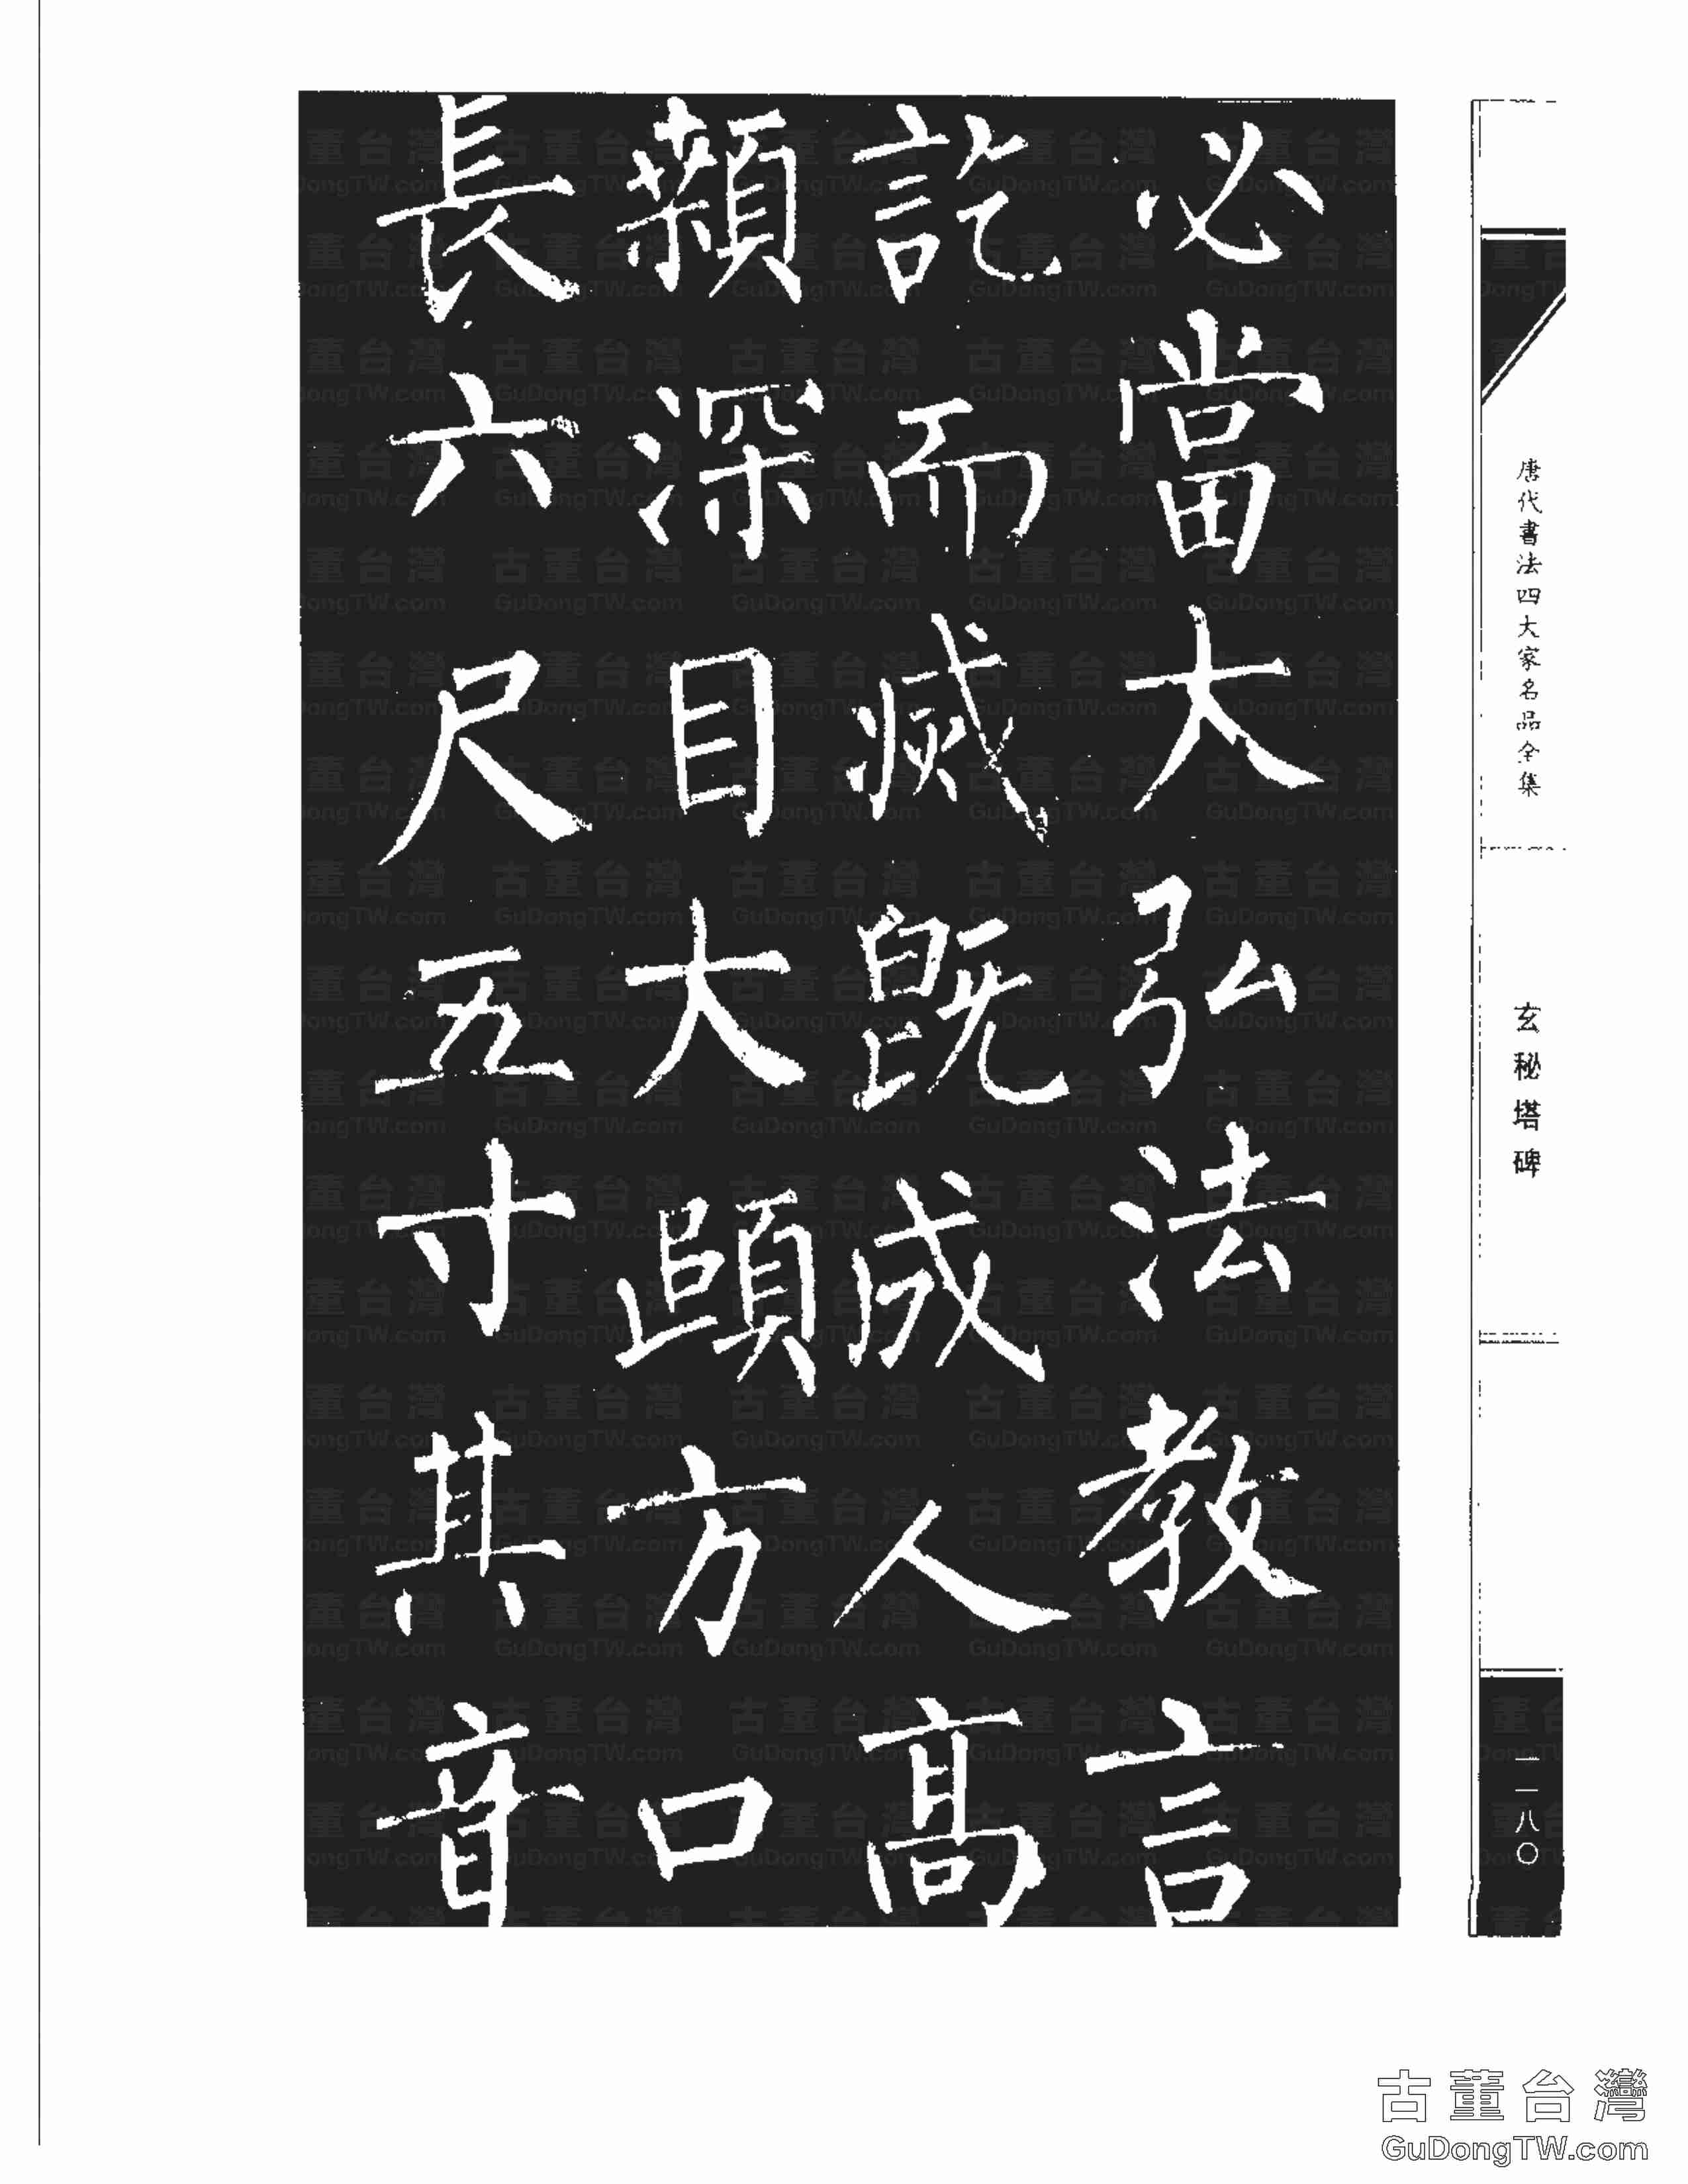 唐代書法四大家名品全集
玄秘塔碑
一一八〇
必當大弘法教言
訖而滅既成人高
顙深目大頤方口
長六尺五寸其音
古董台灣
GuDongTW.com